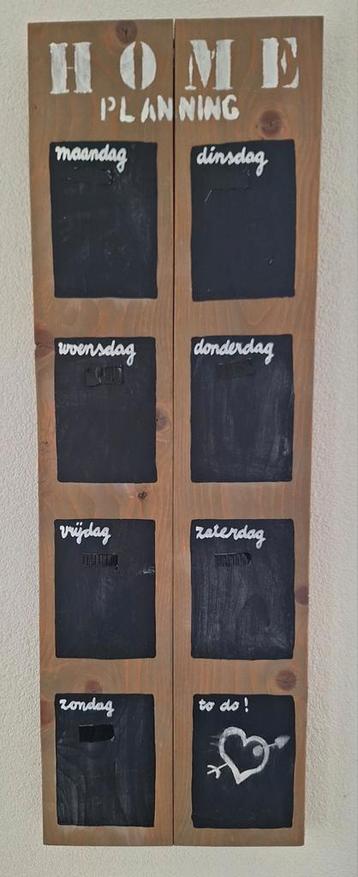 HOME
PLANNING
maandag
dinsdag
woensdag
donderdag
vrijdag
zaterdag
zondag
to do!